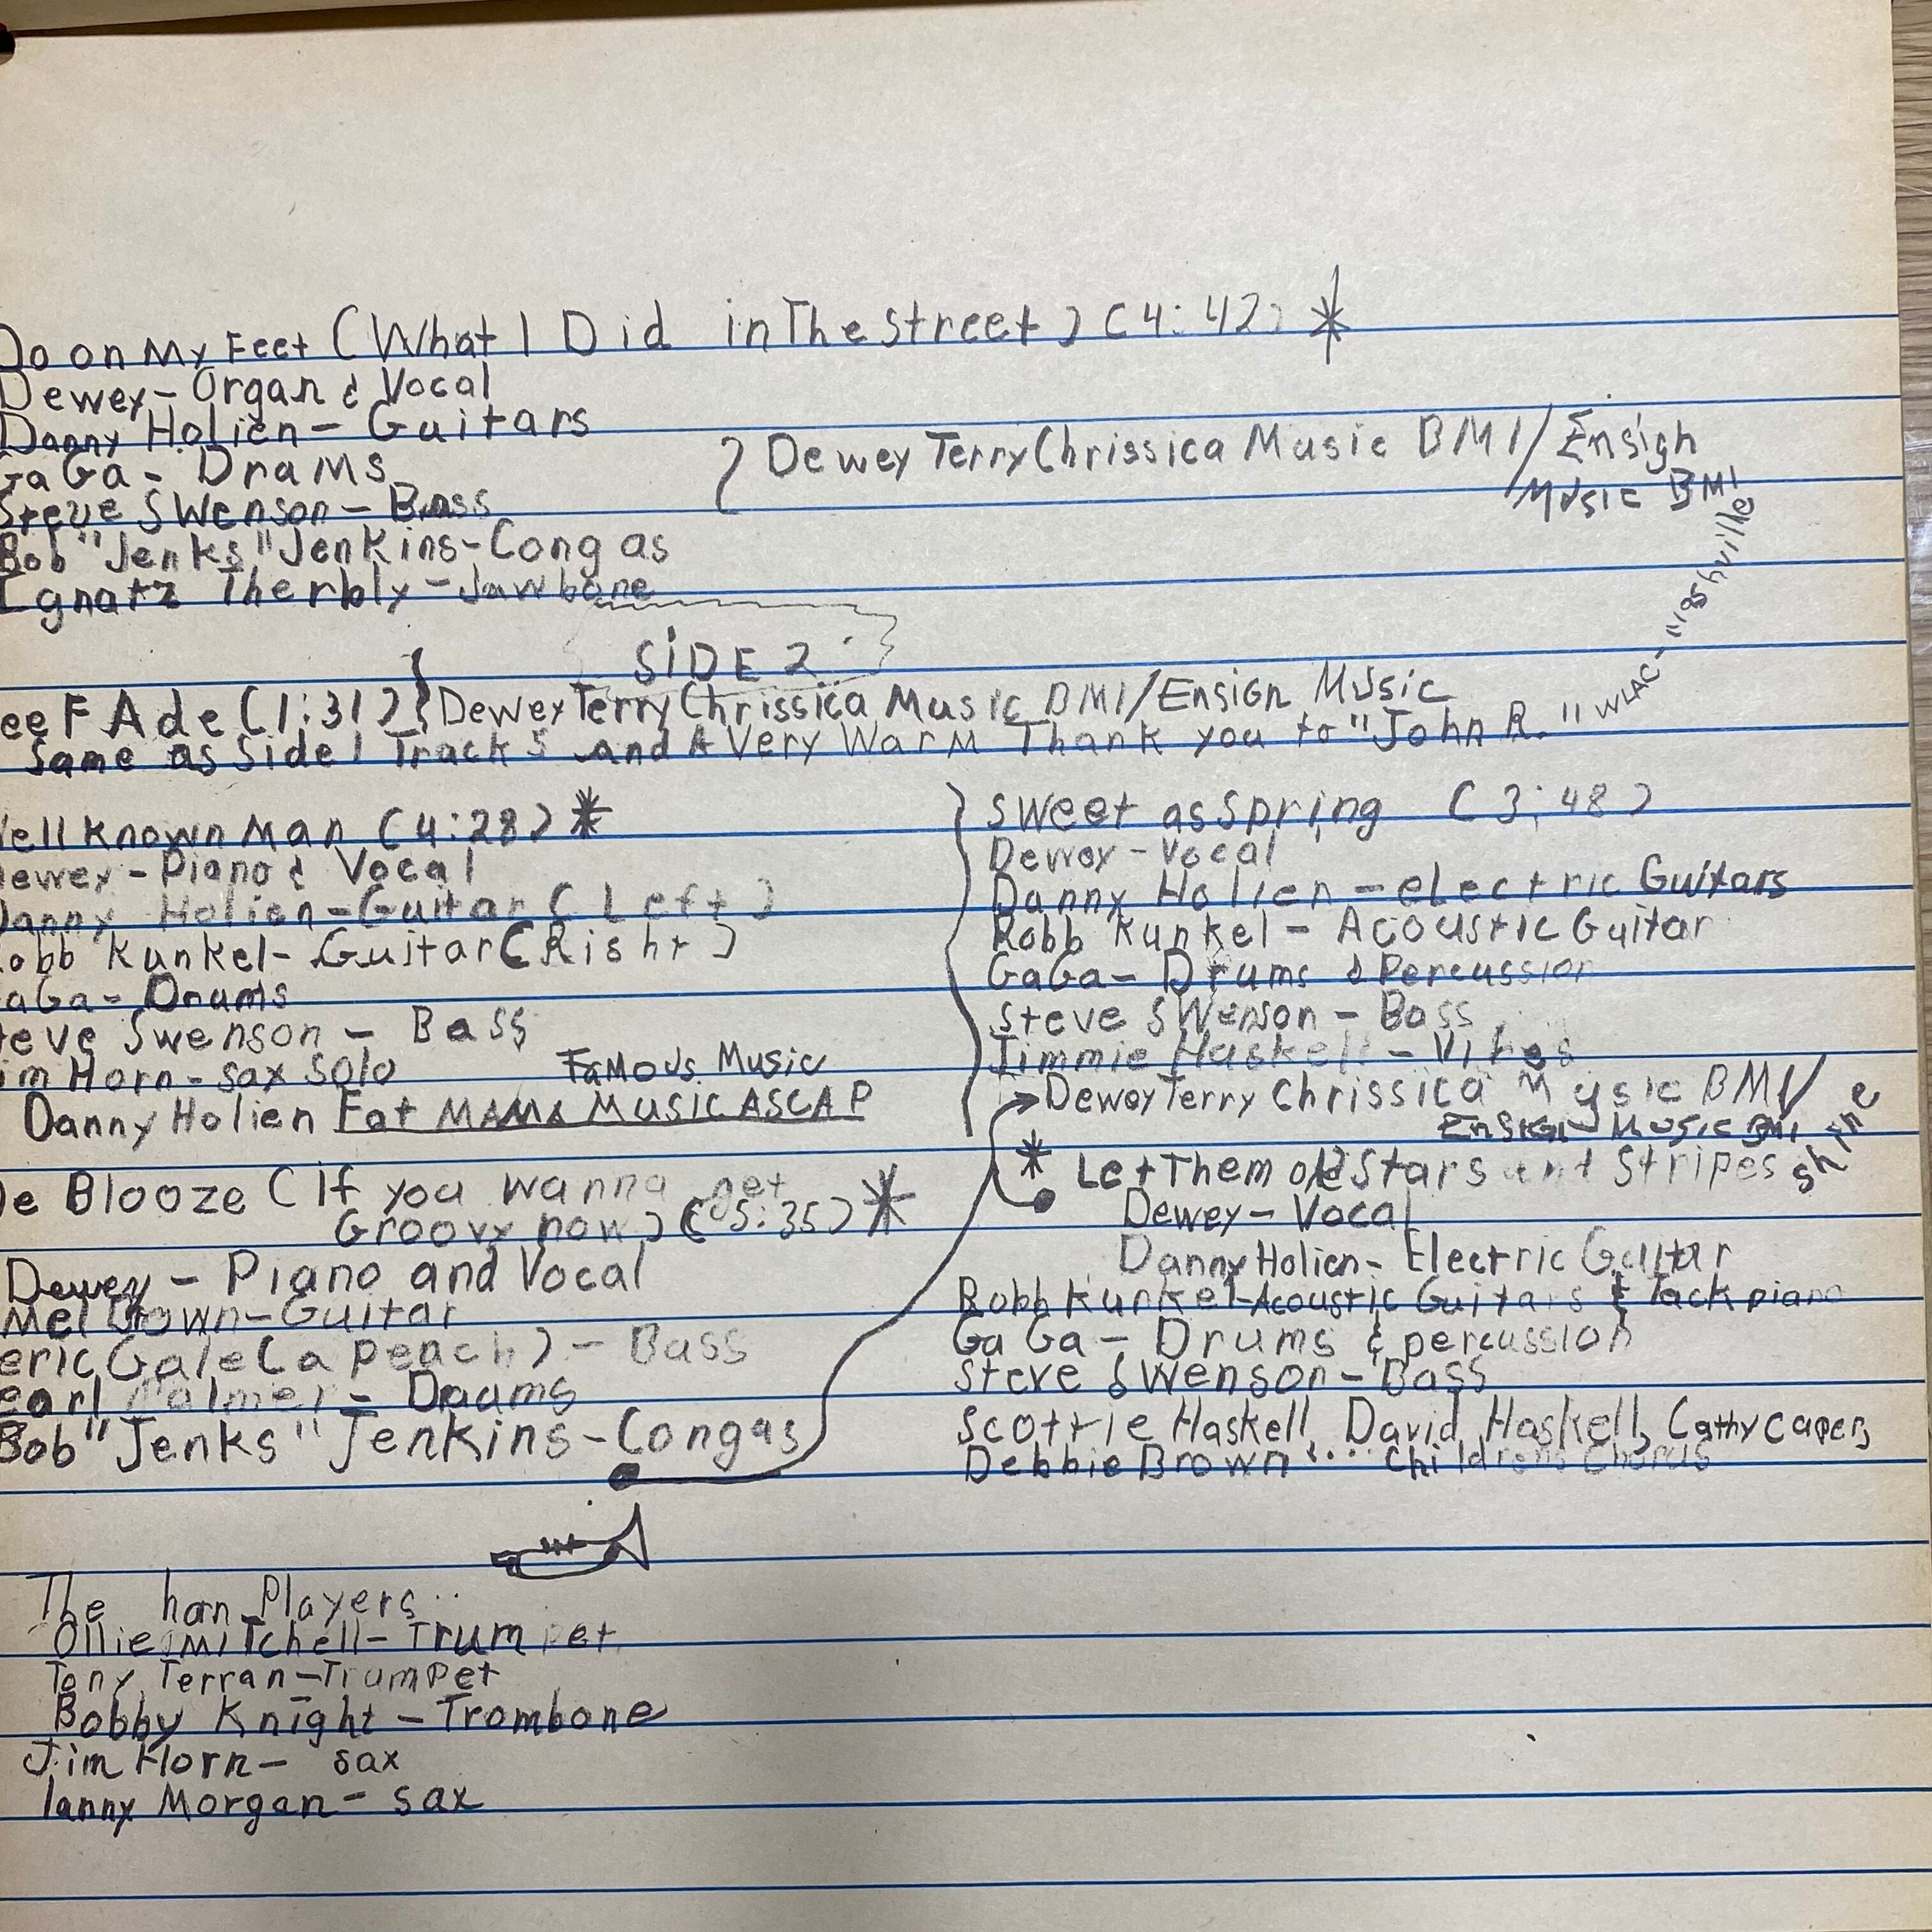 Do on My Feet (What I Did in The street) (4:42) *
Dewey - Organ & Vocal
Danny Holien - Guitars
GaGa - Drams
Steve Swenson - Bass
Bob "Jenks" Jenkins - Congas
Ignatz Therbly - Jawbone
} Dewey Terry Chrissica Music BMI/Ensign
Music BMI
SiDE 2
ee FAde (1:31) } Dewey Terry Chrissica Music BMI/Ensign Music
Same as Side 1 Track 5 and A Very Warm Thank you to "John R." WLAC - Nashville
ell Known Man (4:28) *
Dewey - Piano & Vocal
Danny Holien - Guitar (Left)
obb Kunkel - Guitar (Right)
aGa - Drums
teve Swenson - Bass
im Horn - sax solo
Famous Music
Danny Holien Fat MAMA MUSIC ASCAP
e Blooze (If you wanna get
Groovy now) (5:35) *
Dewey - Piano and Vocal
Mel Brown - Guitar
eric Gale (a peach) - Bass
earl Palmer - Drums
Bob "Jenks" Jenkins - Congas
sweet as Spring (3:48)
Dewey - Vocal
Danny Holien - electric Guitars
Robb Kunkel - Acoustic Guitar
GaGa - Drums & Percussion
Steve Swenson - Bass
Jimmie Haskell - Vibes
Dewey Terry Chrissica Music BMI/
Ensign Music BMI
* Let Them old Stars and Stripes shine
Dewey - Vocal
Danny Holien - Electric Guitar
Robb Kunkel - Acoustic Guitars & Tack piano
Ga Ga - Drums & percussion
Steve Swenson - Bass
Scottie Haskell, David Haskell, Cathy Capers
Debbie Brown .... Childrens Chorus
The horn Players..
Ollie Mitchell - Trumpet
Tony Terran - Trumpet
Bobby Knight - Trombone
Jim Horn - sax
lanny Morgan - sax